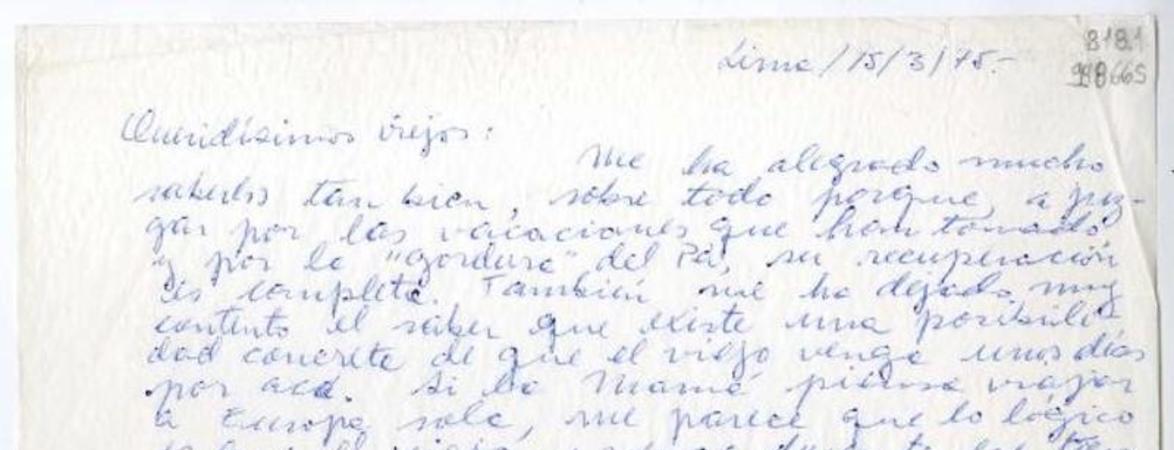 8181
Lima/15/3/75.-
998665
Queridísimos viejos:
Me ha alegrado mucho
saberlos tan bien, sobre todo porque, a juz-
gar por las vacaciones que han tomado
y por la "gordura" del Pá, su recuperación
es completa. También me ha dejado muy
contento el saber que existe una posibili-
dad concreta de que el viejo venga unos días
por acá. Si la Mamá piensa viajar
a Europa sola, me parece que lo lógico